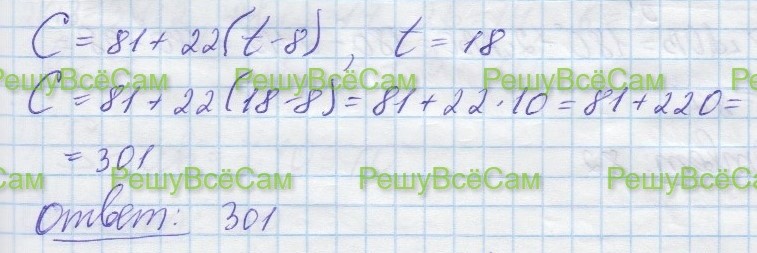 C = 81 + 22(t - 8), t = 18
РешуВсёСам РешуВсёСам РешуВсёСам Р
C = 81 + 22(18 - 8) = 81 + 22 · 10 = 81 + 220 =
= 301
ам РешуВсёСам РешуВсёСам РешуВсёСам
Ответ: 301